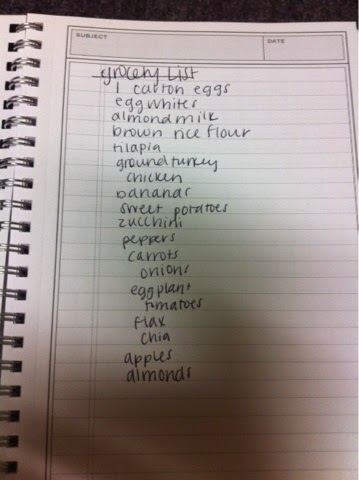 SUBJECT
DATE
grocery List
1 carton eggs
egg whites
almond milk
brown rice flour
tilapia
ground turkey
chicken
bananas
sweet potatoes
zucchini
peppers
carrots
onions
eggplant
tomatoes
flax
chia
apples
almonds